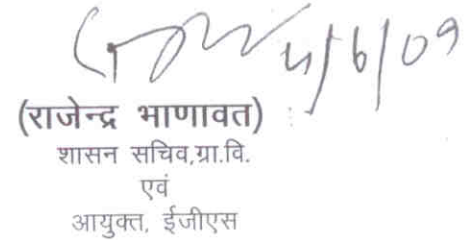 4/6/09
(राजेन्द्र भाणावत)
शासन सचिव,ग्रा.वि.
एवं
आयुक्त, ईजीएस